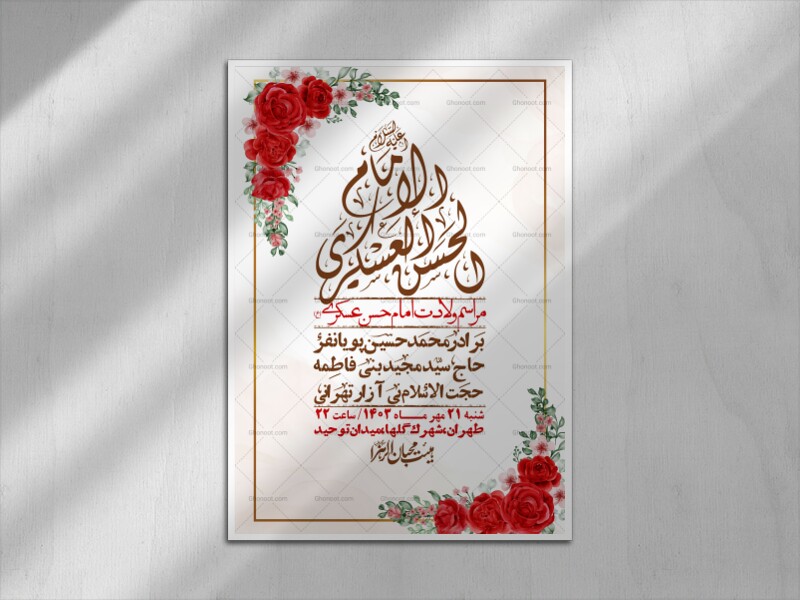 علیه السلام
الامام
الحسن العسکری
مراسم ولادت امام حسن عسکری (ع)
برادر محمد حسین پویانفر
حاج سید مجید بنی فاطمه
حجت الاسلام بی آزار تهرانی
شنبه ۲۱ مهر ماه ۱۴۰۳ / ساعت ۲۲
طهران، شهرک گلها، میدان توحید
هیئت محبان الزهرا
Ghonoot.com